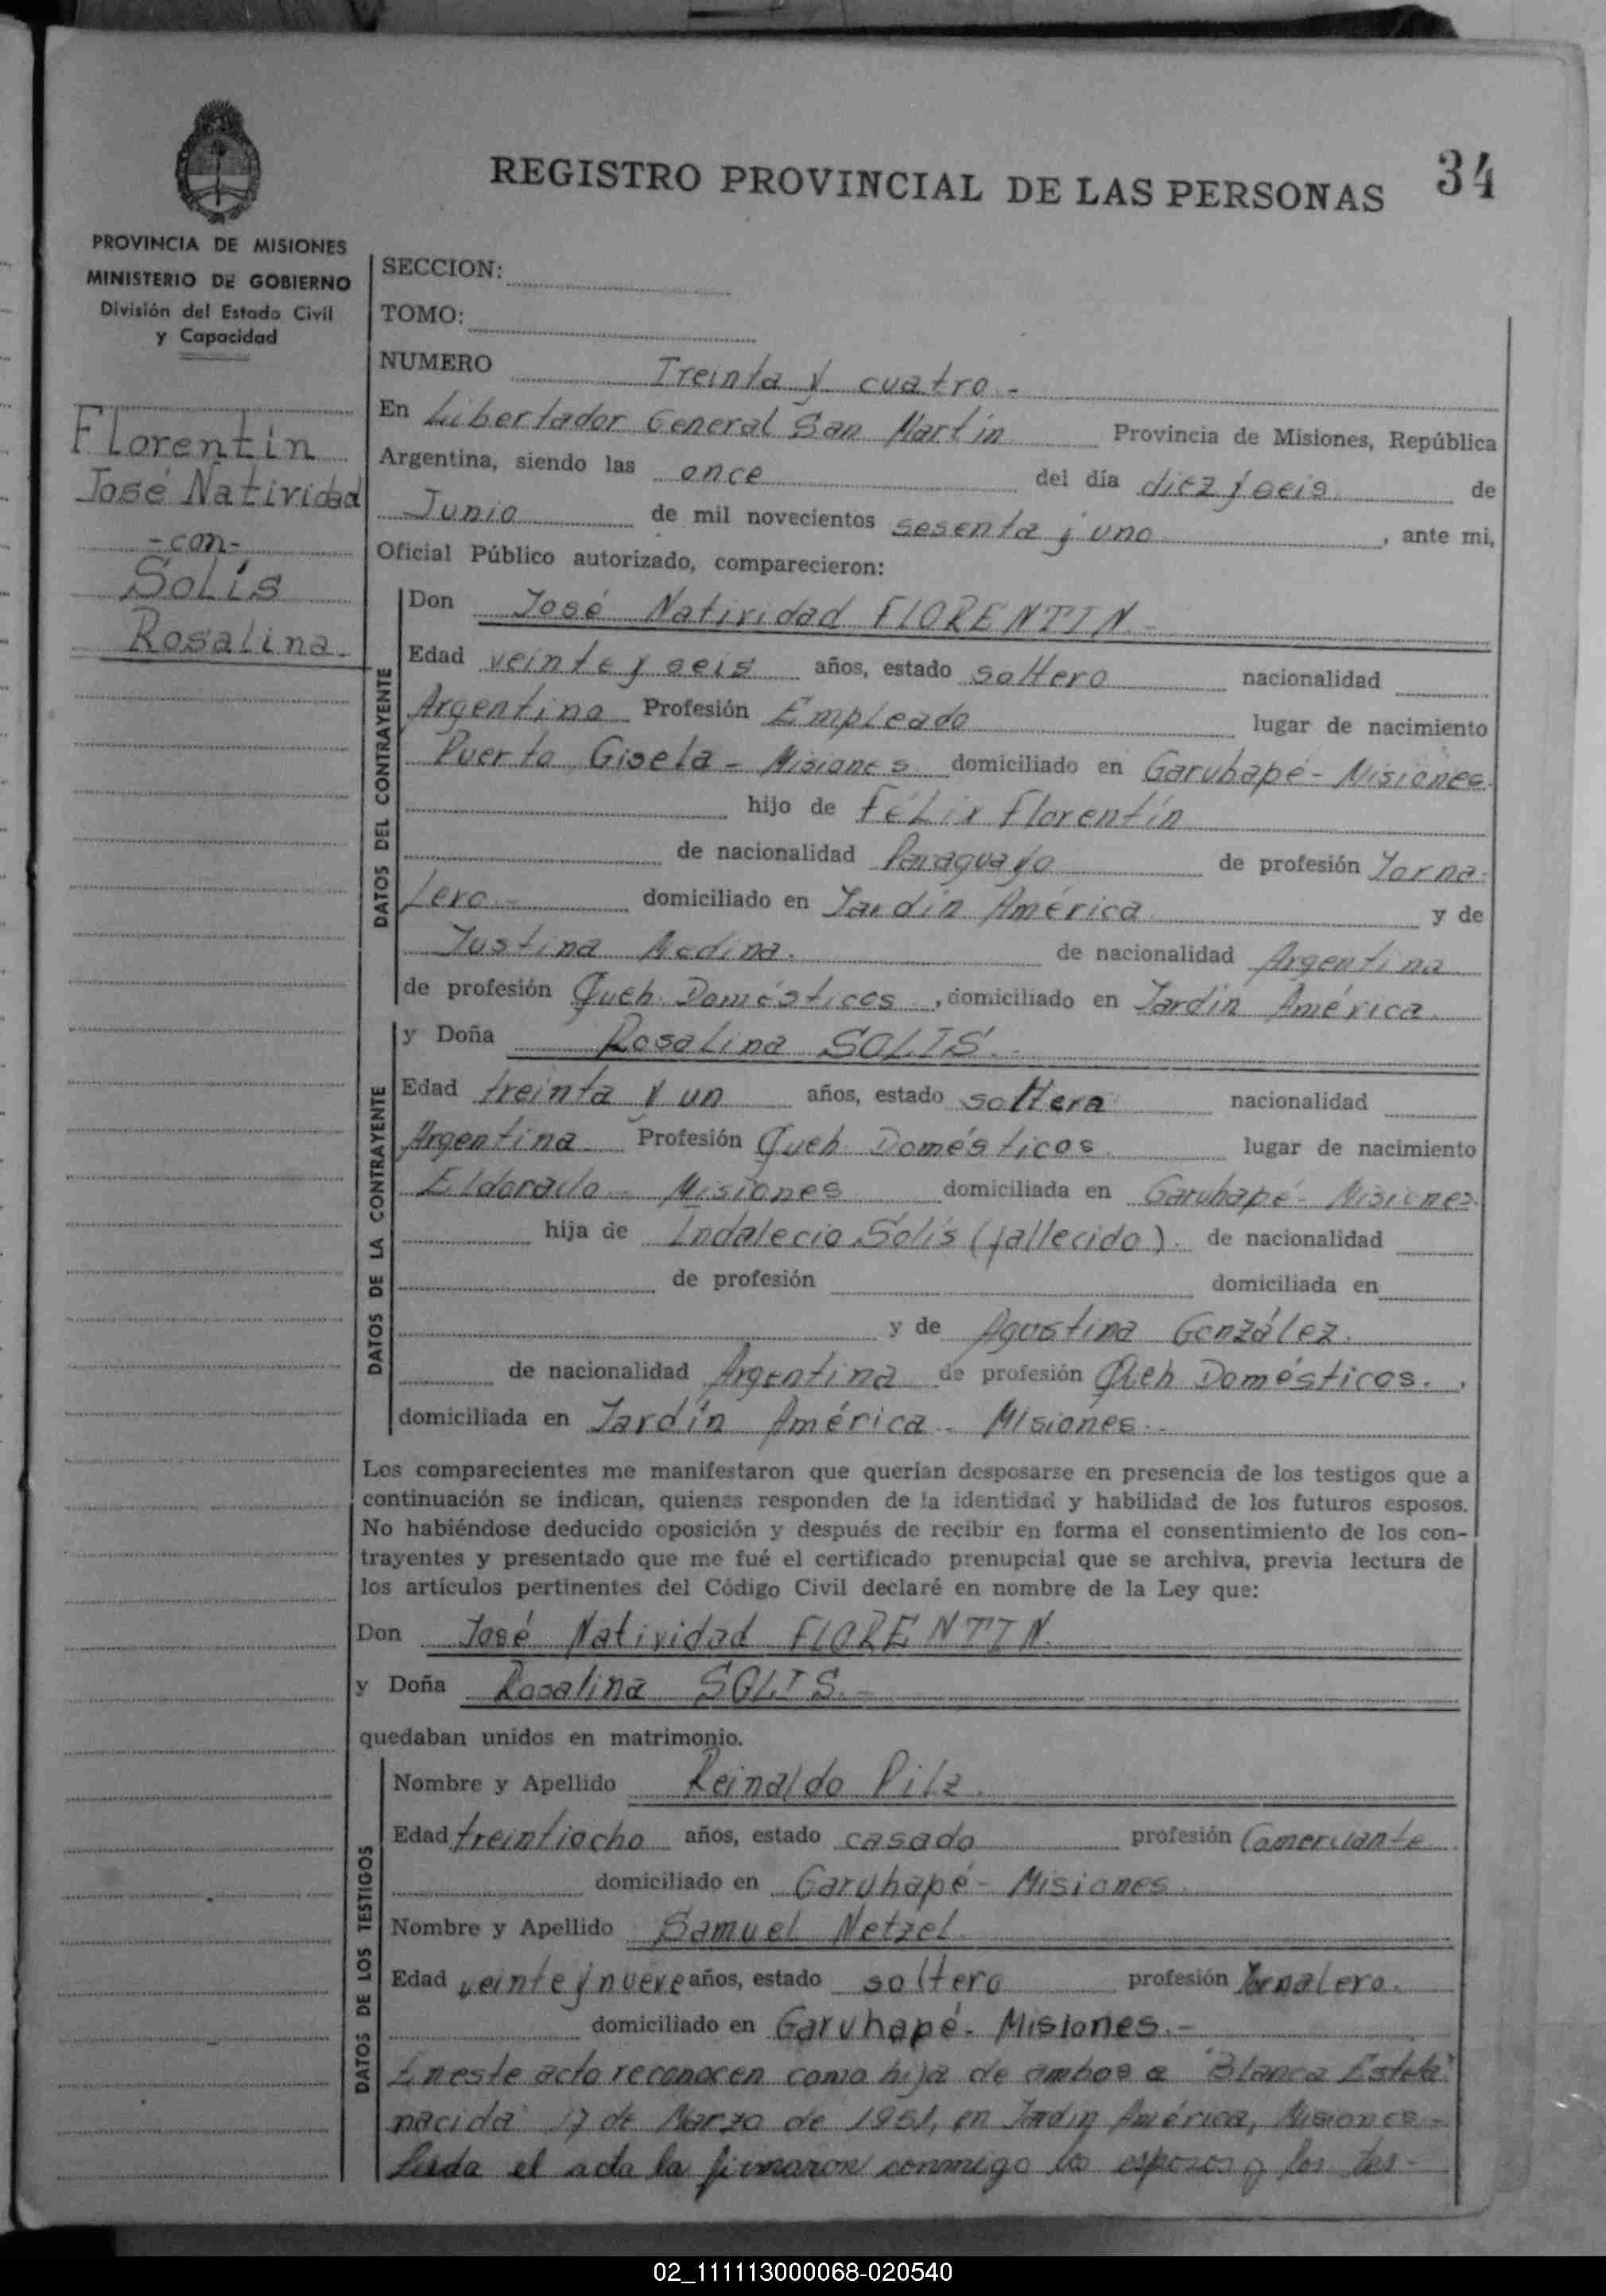 REGISTRO PROVINCIAL DE LAS PERSONAS 34
PROVINCIA DE MISIONES
MINISTERIO DE GOBIERNO
División del Estado Civil
y Capacidad
Florentín
José Natividad
-con-
Solís
Rosalina.
SECCION:
TOMO:
NUMERO Treinta y cuatro.-
En Libertador General San Martín Provincia de Misiones, República
Argentina, siendo las once del día diez y seis de
Junio de mil novecientos sesenta y uno, ante mi,
Oficial Público autorizado, comparecieron:
DATOS DEL CONTRAYENTE
Don José Natividad FLORENTIN.-
Edad veinte y seis años, estado soltero nacionalidad
Argentino Profesión Empleado lugar de nacimiento
Puerto Gisela - Misiones domiciliado en Garuhapé - Misiones.
hijo de Félix Florentín
de nacionalidad Paraguayo de profesión Jorna-
lero.- domiciliado en Jardín América y de
Justina Medina. de nacionalidad Argentina
de profesión Queh. Domésticos, domiciliado en Jardín América.
DATOS DE LA CONTRAYENTE
y Doña Rosalina SOLIS.-
Edad treinta y un años, estado soltera nacionalidad
Argentina Profesión Queh. Domésticos. lugar de nacimiento
Eldorado - Misiones domiciliada en Garuhapé - Misiones.
hija de Indalecio Solís (fallecido). de nacionalidad
de profesión domiciliada en
y de Agustina González.
de nacionalidad Argentina de profesión Queh Domésticos.,
domiciliada en Jardín América - Misiones.-
Los comparecientes me manifestaron que querían desposarse en presencia de los testigos que a
continuación se indican, quienes responden de la identidad y habilidad de los futuros esposos.
No habiéndose deducido oposición y después de recibir en forma el consentimiento de los con-
trayentes y presentado que me fué el certificado prenupcial que se archiva, previa lectura de
los artículos pertinentes del Código Civil declaré en nombre de la Ley que:
Don José Natividad FLORENTIN.
y Doña Rosalina SOLIS.-
quedaban unidos en matrimonio.
DATOS DE LOS TESTIGOS
Nombre y Apellido Reinaldo Pilz.
Edad treintiocho años, estado casado profesión Comerciante
domiciliado en Garuhapé - Misiones.
Nombre y Apellido Samuel Netzel.
Edad veinte y nueve años, estado soltero profesión Jornalero.
domiciliado en Garuhapé - Misiones.-
En este acto reconocen como hija de ambos a "Blanca Estela"
nacida 17 de Marzo de 1951, en Jardín América, Misiones.-
Leida el acta la firmaron conmigo los esposos y los tes-
02_111113000068-020540